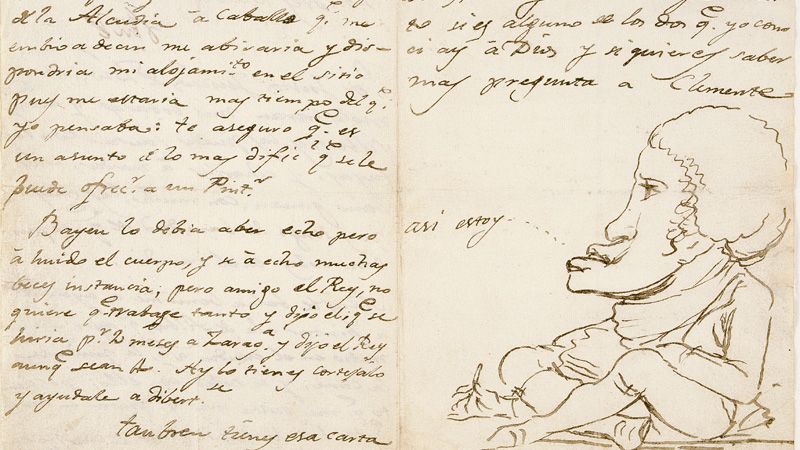 de la Alcudia á Caballo q.e me
embio a decir me abisaria y dis-
pondria mi alojami.to en el sitio
pues me estaria mas tiempo del q.e
yo pensaba: te aseguro q.e es
un asunto de lo mas dific.l q.e se le
puede ofrec.r a un Pint.r
Bayeu lo debia aber echo pero
á huido el cuerpo, y se á echo muchas
beces instancia; pero amigo el Rey, no
quiere q.e trabage tanto y dijo el q.e se
hiria p.r 2 meses a Zarag.a y dijo el Rey
aunq.e sean 4. Ay lo tienes cortejalo
y ayudale a dibert.se
tanbien tienes esa carta
te si es alguno de los dos q.e yo cono
ci ay á Dios y si quieres saber
mas pregunta a Clemente
asi estoy